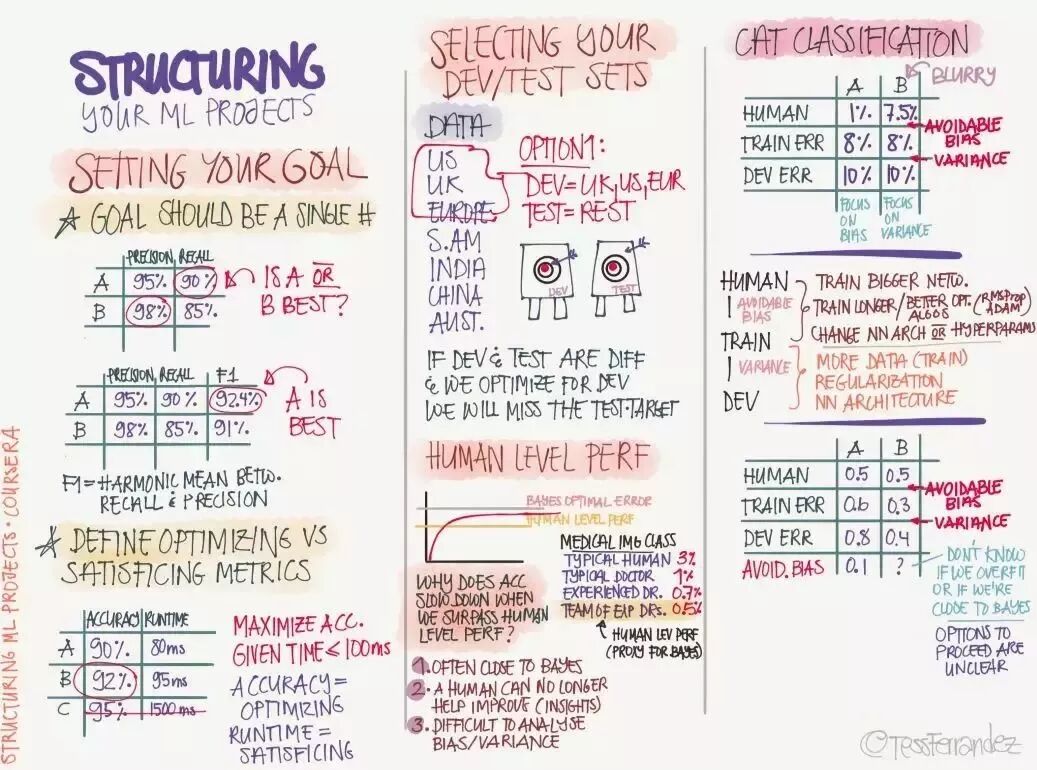 STRUCTURING
YOUR ML PROJECTS
SETTING YOUR GOAL
GOAL SHOULD BE A SINGLE #
PRECISION RECALL
A 95% 90%
B 98% 85%
IS A OR
B BEST?
PRECISION RECALL F1
A 95% 90% 92.4%
B 98% 85% 91%
A IS
BEST
F1 = HARMONIC MEAN BETW.
RECALL & PRECISION
DEFINE OPTIMIZING VS
SATISFICING METRICS
ACCURACY RUNTIME
A 90% 80ms
B 92% 95ms
C 95% 1500 ms
MAXIMIZE ACC.
GIVEN TIME ≤ 100MS
ACCURACY =
OPTIMIZING
RUNTIME =
SATISFICING
STRUCTURING ML PROJECTS · COURSERA
SELECTING YOUR
DEV/TEST SETS
DATA
US
UK
EUROPE
S.AM
INDIA
CHINA
AUST.
OPTION1:
DEV = UK, US, EUR
TEST = REST
DEV
TEST
IF DEV & TEST ARE DIFF
& WE OPTIMIZE FOR DEV
WE WILL MISS THE TEST-TARGET
HUMAN LEVEL PERF
BAYES OPTIMAL ERROR
HUMAN LEVEL PERF
MEDICAL IMG CLASS
TYPICAL HUMAN 3%
TYPICAL DOCTOR 1%
EXPERIENCED DR. 0.7%
TEAM OF EXP DRS. 0.5%
HUMAN LEV PERF
(PROXY FOR BAYES)
WHY DOES ACC
SLOW DOWN WHEN
WE SURPASS HUMAN
LEVEL PERF?
1. OFTEN CLOSE TO BAYES
2. A HUMAN CAN NO LONGER
HELP IMPROVE (INSIGHTS)
3. DIFFICULT TO ANALYSE
BIAS/VARIANCE
CAT CLASSIFICATION
BLURRY
A B
HUMAN 1% 7.5%
TRAIN ERR 8% 8%
DEV ERR 10% 10%
AVOIDABLE
BIAS
VARIANCE
FOCUS
ON
BIAS
FOCUS
ON
VARIANCE
HUMAN
AVOIDABLE
BIAS
TRAIN
VARIANCE
DEV
TRAIN BIGGER NETW.
TRAIN LONGER/BETTER OPT. ALGOS (RMSPROP ADAM)
CHANGE NN ARCH OR HYPERPARAMS
MORE DATA (TRAIN)
REGULARIZATION
NN ARCHITECTURE
A B
HUMAN 0.5 0.5
TRAIN ERR 0.6 0.3
DEV ERR 0.8 0.4
AVOID. BIAS 0.1 ?
AVOIDABLE
BIAS
VARIANCE
DON'T KNOW
IF WE OVERFIT
OR IF WE'RE
CLOSE TO BAYES
OPTIONS TO
PROCEED ARE
UNCLEAR
@TessFerrandez